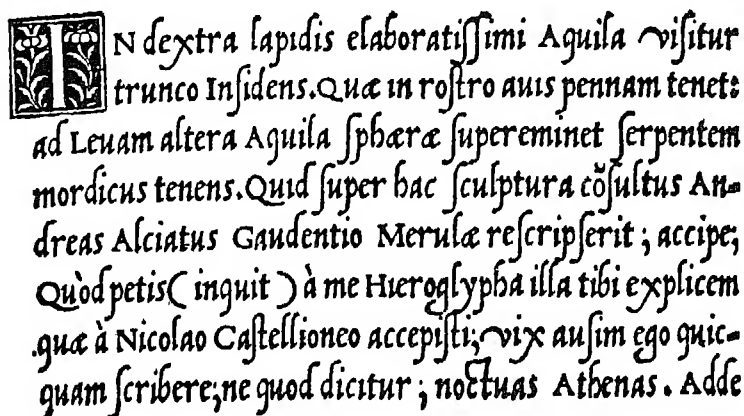 IN dextra lapidis elaboratiſſimi Aquila viſitur
trunco Inſidens. Quæ in roſtro auis pennam tenet:
ad Leuam altera Aquila ſphæræ ſupereminet ſerpentem
mordicus tenens. Quid ſuper hac ſculptura cõſultus An-
dreas Alciatus Gaudentio Merulæ reſcripſerit; accipe;
Quòd petis( inquit ) à me Hieroglypha illa tibi explicem
.quæ à Nicolao Caſtellioneo accepiſti; vix auſim ego quic-
quam ſcribere; ne quod dicitur; noctuas Athenas. Adde